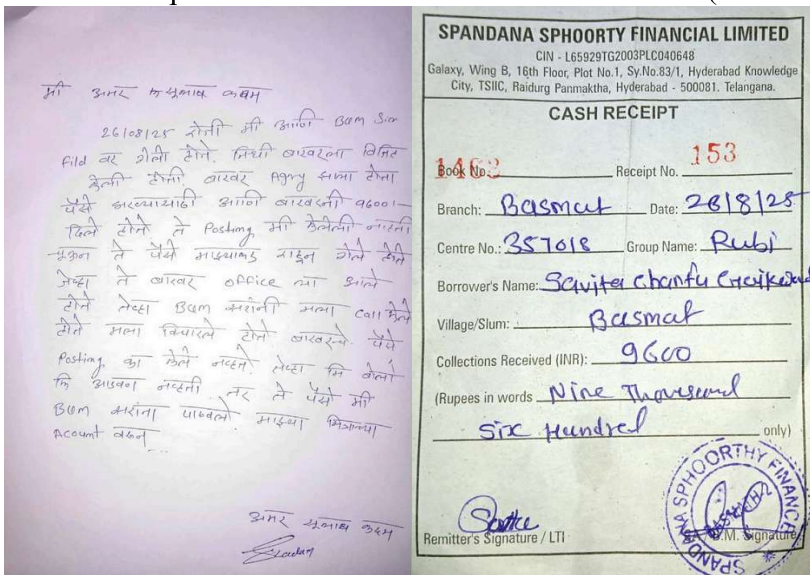 मी अमर सुभाष कदम
26/08/25 रोजी मी आणि Bum Sir
Fild वर गेलो होतो.
केली होती. सभा
पैसे भरण्यासाठी आणि 9600/-
दिले होते ते Posting मी केलेली नव्हती
चुकून ते पैसे माझ्याकडे राहून गेले होते
जेव्हा ते office ला आले
होते तेव्हा Bum सरांनी मला call केले
होते मला विचारले होते पैसे
Posting का केले नव्हते तेव्हा मि बोलो
कि नव्हती तर ते पैसे मी
Bum सरांना पाठवलो माझ्या मित्राच्या
Acount वरून
अमर सुभाष कदम
SPANDANA SPHOORTY FINANCIAL LIMITED
CIN - L65929TG2003PLC040648
Galaxy, Wing B, 16th Floor, Plot No.1, Sy.No.83/1, Hyderabad Knowledge
City, TSIIC, Raidurg Panmaktha, Hyderabad - 500081. Telangana.
CASH RECEIPT
Book No. Receipt No. 153
Branch: Basmat Date: 26/8/25
Centre No.: 357018 Group Name: Rubi
Borrower's Name: Savita
Village/Slum: Basmat
Collections Received (INR): 9600
(Rupees in words Nine Thousend
Six Hundred only)
SPANDANA SPHOORTHY FINANCE
Remitter's Signature / LTI B.M. Signature